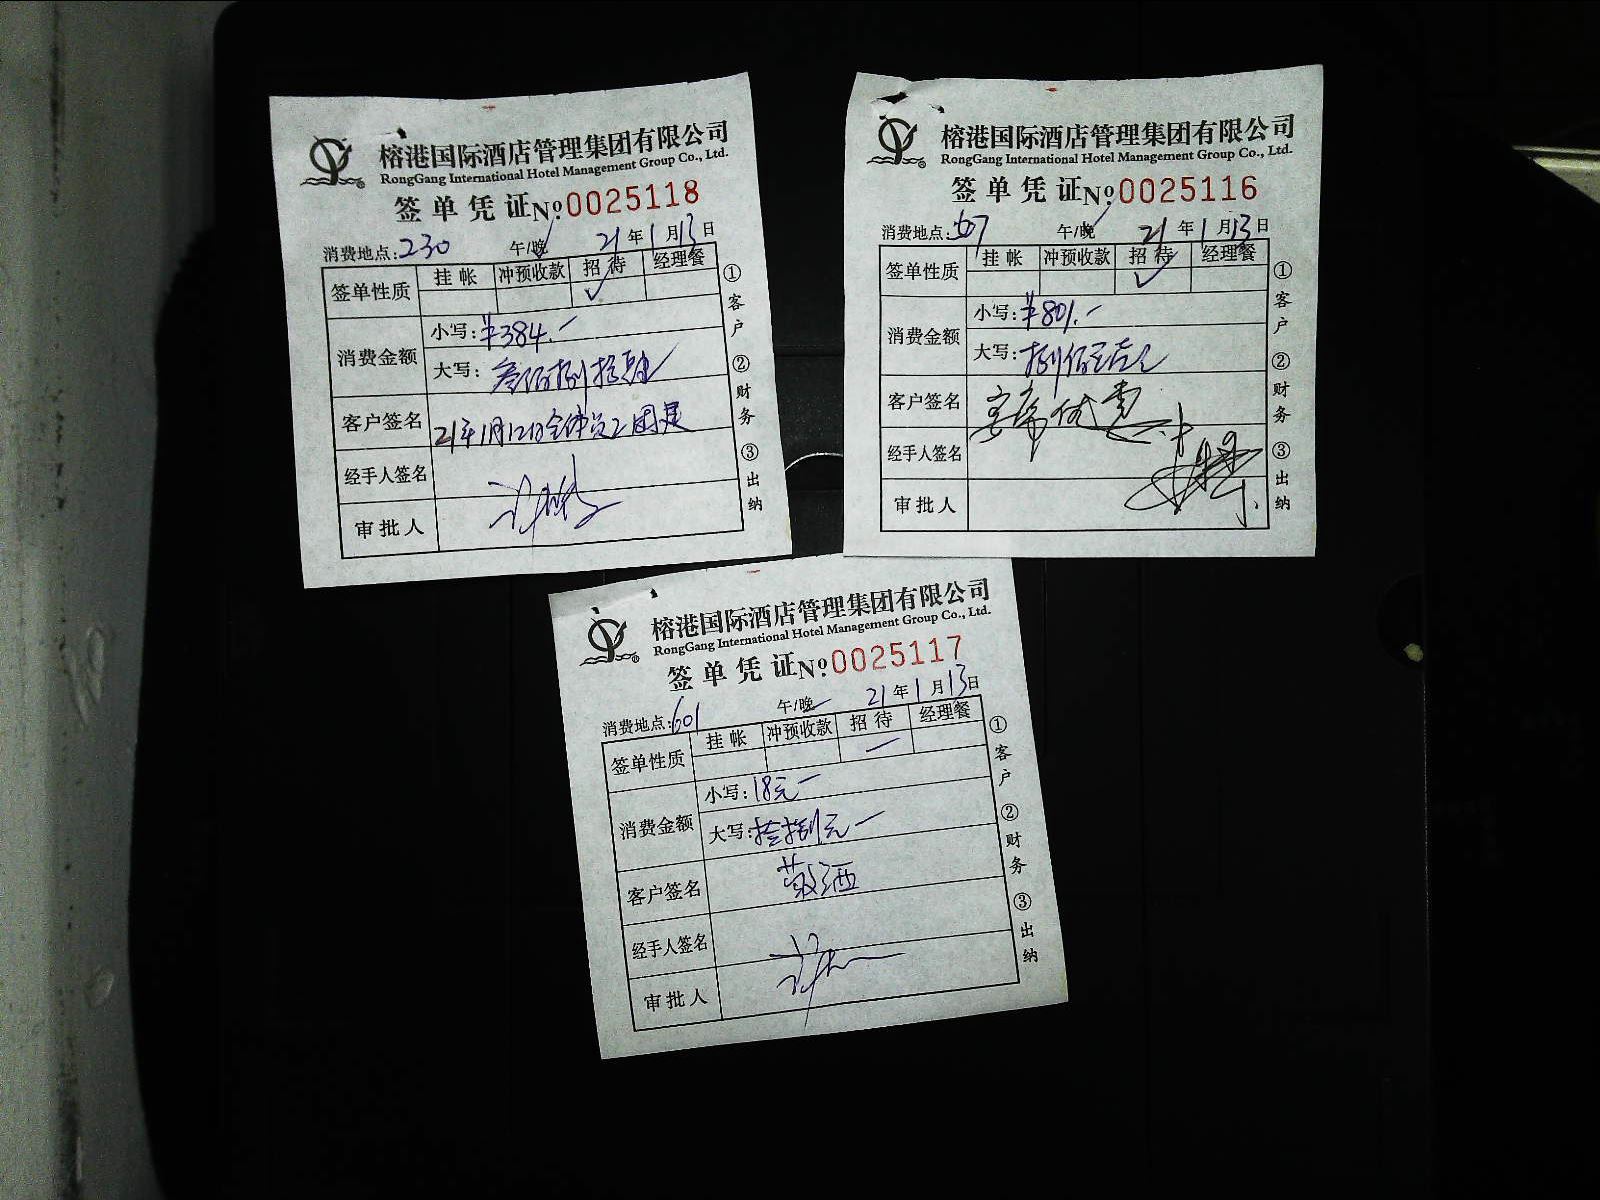 榕港国际酒店管理集团有限公司
RongGang International Hotel Management Group Co., Ltd.
签单凭证№0025118
消费地点:230 午/晚 21年1月13日
签单性质 挂帐 冲预收款 招待 经理餐
✓
消费金额 小写:¥384.一
大写:叁佰捌拾肆
客户签名 21年1月12日全体员工团
经手人签名
审批人
①客户 ②财务 ③出纳
榕港国际酒店管理集团有限公司
RongGang International Hotel Management Group Co., Ltd.
签单凭证№0025116
消费地点:507 午/晚 21年1月13日
签单性质 挂帐 冲预收款 招待 经理餐
✓
消费金额 小写:¥801.一
大写:捌佰零壹元
客户签名
经手人签名
审批人
①客户 ②财务 ③出纳
榕港国际酒店管理集团有限公司
RongGang International Hotel Management Group Co., Ltd.
签单凭证№0025117
消费地点:601 午/晚 21年1月13日
签单性质 挂帐 冲预收款 招待 经理餐
消费金额 小写:18元一
大写:拾捌元一
客户签名 敬酒
经手人签名
审批人
①客户 ②财务 ③出纳